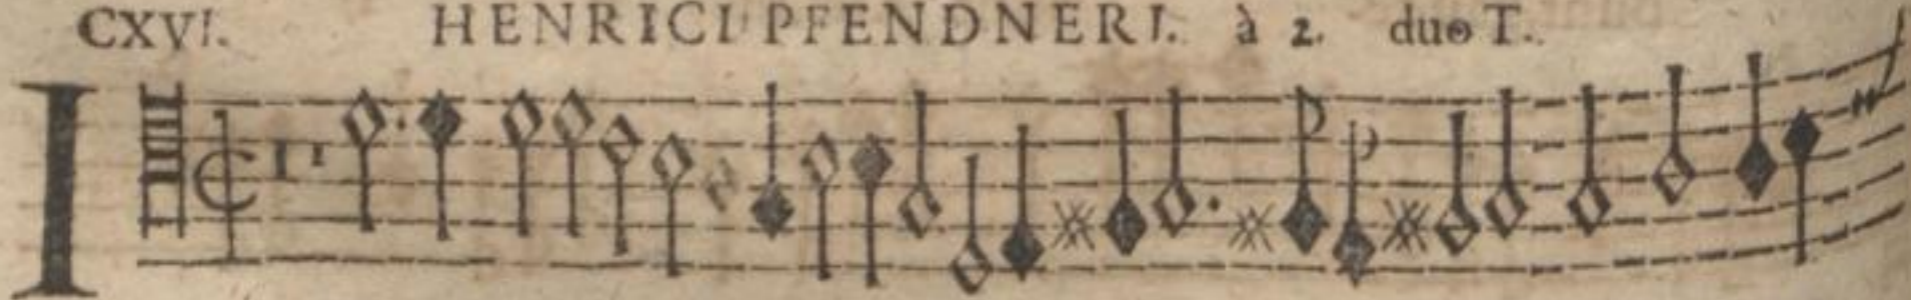 CXVI. HENRICI PFENDNERI. à 2. duo T.
I